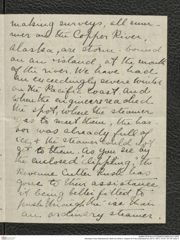 making surveys, all sum-
mer on the Copper River,
Alaska, are storm bound
on an island, at the mouth
of the river. We have had
an exceedingly severe winter
on the Pacific Coast and
when the engineers reached
the spot, where the steamer
was to meet them, the har-
bor was already full of
ice & the steamer could not
get to them. As you see by
the enclosed clipping, the
Revenue Cutter Rush has
gone to their assistance
it being better fitted to
push through the ice than
an ordinary steamer.